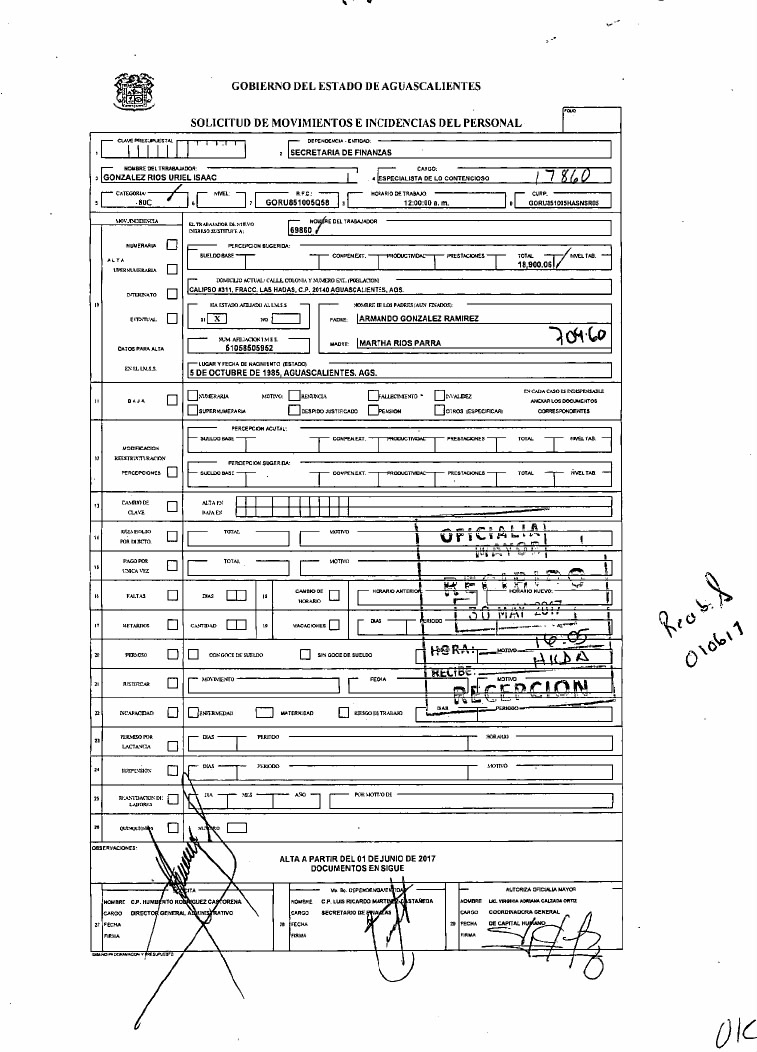 GOBIERNO DEL ESTADO DE AGUASCALIENTES
SOLICITUD DE MOVIMIENTOS E INCIDENCIAS DEL PERSONAL
FOLIO
CLAVE PRESUPUESTAL
DEPENDENCIA - ENTIDAD:
1
2 SECRETARIA DE FINANZAS
NOMBRE DEL TRABAJADOR:
CARGO:
3 GONZALEZ RIOS URIEL ISAAC
4 ESPECIALISTA DE LO CONTENCIOSO 17860
CATEGORIA: NIVEL: R.F.C.: HORARIO DE TRABAJO CURP.
5 8UC 6 7 GORU851005Q58 8 12:00:00 a. m. 9 GORU851005HASNSR05
MOV./INCIDENCIA
EL TRABAJADOR DE NUEVO INGRESO SUSTITUYE A:
NOMBRE DEL TRABAJADOR
69860
NUMERARIA
PERCEPCION SUGERIDA:
SUELDO BASE COMPEN EXT. PRODUCTIVIDAD PRESTACIONES TOTAL NIVEL TAB.
18,900.05
ALTA
SUPERNUMERARIA
DOMICILIO ACTUAL: CALLE, COLONIA Y NUMERO EXT. (POBLACION)
CALIPSO #311, FRACC. LAS HADAS, C.P. 20140 AGUASCALIENTES, AGS.
INTERINATO
10
HA ESTADO AFILIADO AL I.M.S.S.
NOMBRE DE LOS PADRES (AUN FINADOS):
EVENTUAL
SI X NO
PADRE: ARMANDO GONZALEZ RAMIREZ
70960
NUM AFILIACION I.M.S.S.
51058505952
MADRE: MARTHA RIOS PARRA
DATOS PARA ALTA
EN EL I.M.S.S.
LUGAR Y FECHA DE NACIMIENTO (ESTADO)
5 DE OCTUBRE DE 1985, AGUASCALIENTES. AGS.
11 BAJA
NUMERARIA MOTIVO: RENUNCIA FALLECIMIENTO INVALIDEZ
SUPERNUMERARIA DESPIDO JUSTIFICADO PENSION OTROS (ESPECIFICAR)
EN CADA CASO ES INDISPENSABLE
ANEXAR LOS DOCUMENTOS
CORRESPONDIENTES
PERCEPCION ACUTAL:
SUELDO BASE COMPEN EXT. PRODUCTIVIDAD PRESTACIONES TOTAL NIVEL TAB.
MODIFICACION
12 REESTRUCTURACION
PERCEPCIONES
PERCEPCION SUGERIDA:
SUELDO BASE COMPEN EXT. PRODUCTIVIDAD PRESTACIONES TOTAL NIVEL TAB.
13 CAMBIO DE CLAVE
ALTA EN
BAJA EN
14 REEMBOLSO POR DESCTO.
TOTAL MOTIVO
OFICIALIA
MAYOR
15 PAGO POR UNICA VEZ
TOTAL MOTIVO
16 FALTAS DIAS 18 CAMBIO DE HORARIO HORARIO ANTERIOR HORARIO NUEVO:
30 MAY 2017
17 RETARDOS CANTIDAD 19 VACACIONES DIAS PERIODO
16:05
20 PERMISO CON GOCE DE SUELDO SIN GOCE DE SUELDO MOTIVO
HORA:
HILDA
RECIBE:
21 JUSTIFICAR MOVIMIENTO FECHA MOTIVO
RECEPCION
22 INCAPACIDAD ENFERMEDAD MATERNIDAD RIESGO DE TRABAJO DIAS PERIODO
23 PERMISO POR LACTANCIA DIAS PERIODO HORARIO
24 SUSPENSION DIAS PERIODO MOTIVO
25 REANUDACION DE LABORES DIA MES AÑO POR MOTIVO DE
26 QUINQUENIOS NUMERO
010617
OBSERVACIONES:
ALTA A PARTIR DEL 01 DE JUNIO DE 2017
DOCUMENTOS EN SIGUE
Vo. Bo. DEPENDENCIA/ENTIDAD
AUTORIZA OFICIALIA MAYOR
NOMBRE C.P. HUMBERTO RODRIGUEZ CASTORENA
CARGO DIRECTOR GENERAL ADMINISTRATIVO
27 FECHA
FIRMA
NOMBRE C.P. LUIS RICARDO MARTINEZ CASTAÑEDA
CARGO SECRETARIO DE FINANZAS
28 FECHA
FIRMA
NOMBRE LIC. VIRGINIA ADRIANA CALZADA ORTIZ
CARGO COORDINADORA GENERAL
29 FECHA DE CAPITAL HUMANO
FIRMA